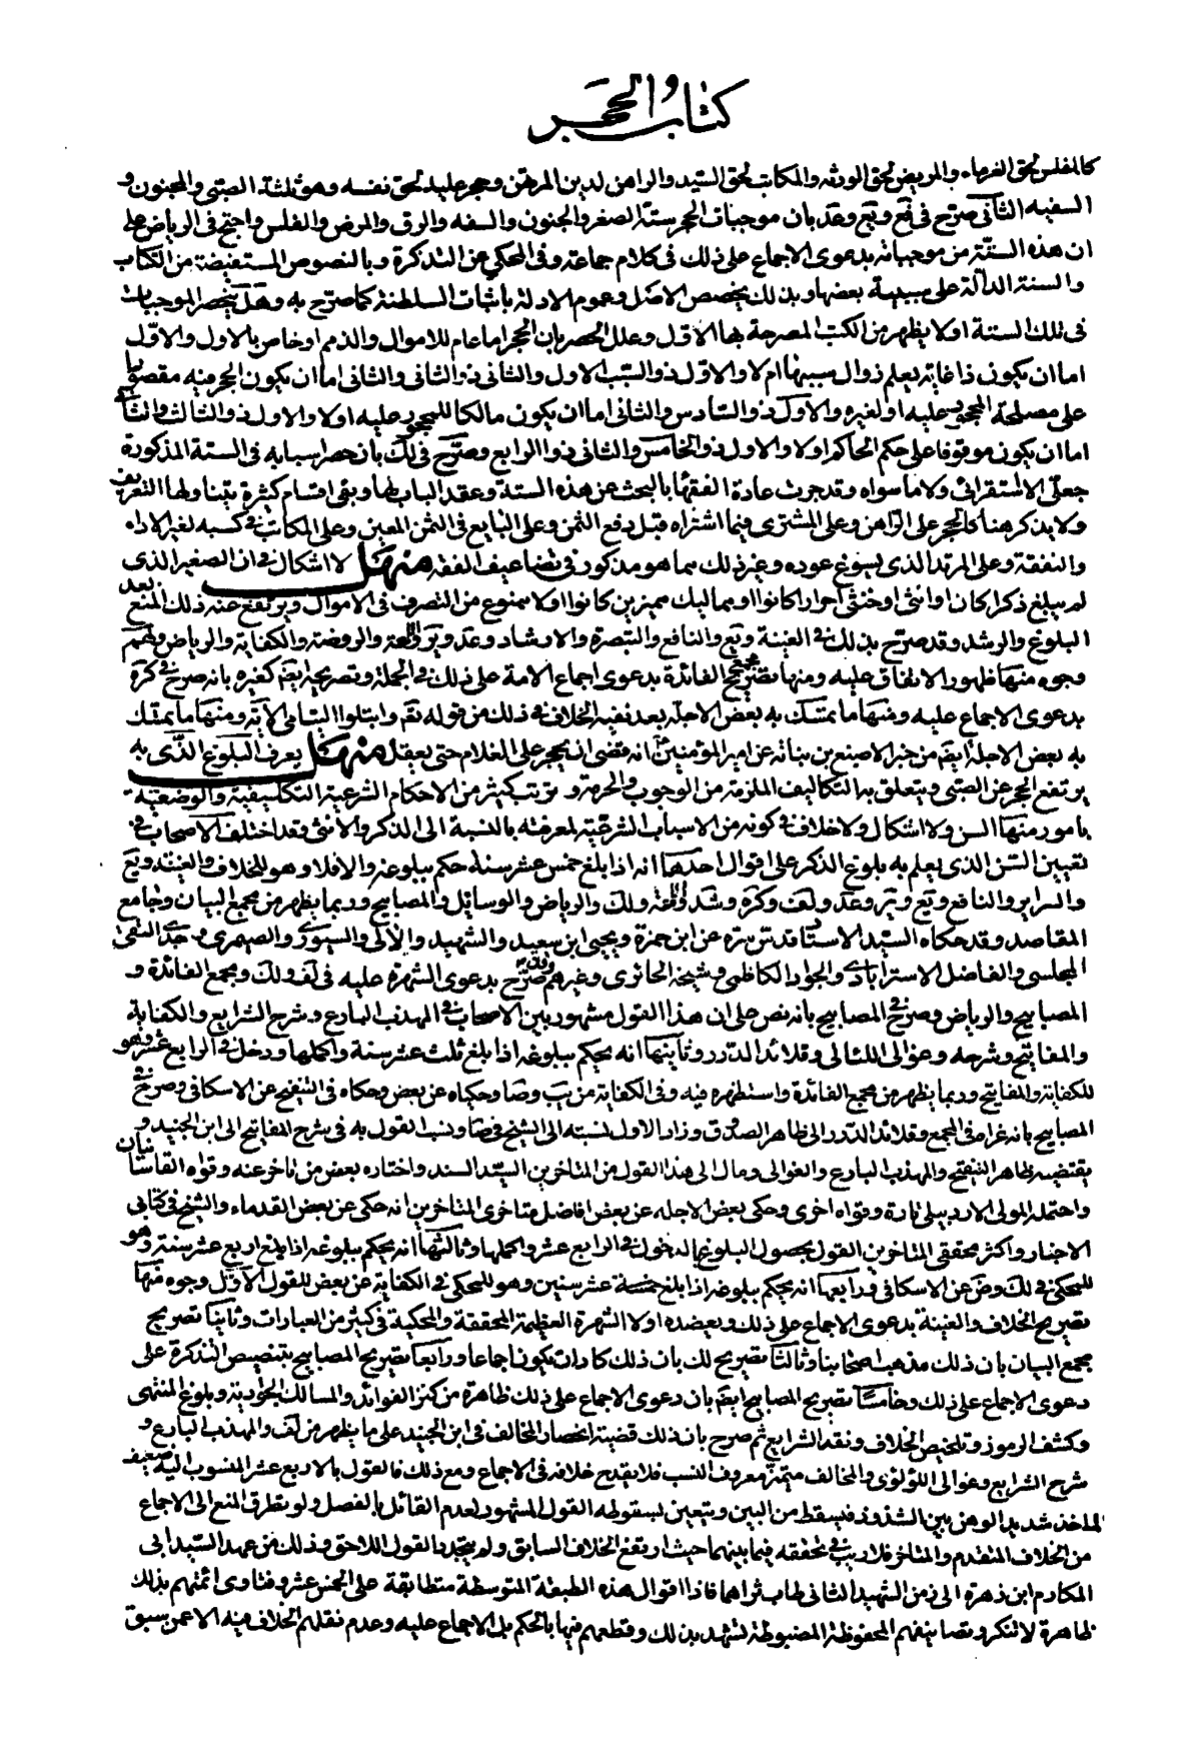 كتاب الحجر
كالمفلس لحق الغرماء والمريض لحق الورثه والمكاتب لحق السيد والراهن لدين المرتهن وحجر عليه لحق نفسه وهو ثلثة الصبى والمجنون و
السفيه الثانى صرّح فى فع ويع وعد بان موجبات الحجر ستة الصغر والجنون والسفه والرق والمرض والفلس واحتج فى الرياض على
ان هذه الستّة من موجباته بدعوى الاجماع على ذلك فى كلام جماعة وفى المحكي عن التذكرة وبالنصوص المستفيضة من الكتاب
والسنة الدالة على سببية بعضها وبذلك يخصص الاصل وعموم الادلة باثبات السلطنة كما صرّح به وهل ينحصر الموجبات
فى تلك الستة اولا يظهر من الكتب المصرحة بها الاوّل وعلل الحصر بان الحجر اما عام للاموال والذمم او خاص بالاول والاوّل
اما ان يكون ذا غاية يعلم زوال سببها ام لا والاوّل ذو السّبب الاول والثانى ذو الثانى والثانى اما ان يكون الحجر فيه مقصورا
على مصلحة المحجور عليه او لغيره والاوّل ذو السّادس والثانى اما ان يكون مالكا للمحجور عليه اولا والاول ذو الثالث والثانى
اما ان يكون موقوفا على حكم الحاكم اولا والاول ذو الخامس والثانى ذو الرابع وصرّح فى لك بان حصر اسبابه فى الستة المذكورة
جعلىّ لا استقرائى ولا ما سواه وقد جرت عادة الفقهاء بالبحث عن هذه الستة وعقد الباب لها وبقى اقسام كثيرة يتناولها التعريف
ولا يذكر هنا كالحجر على الرّاهن وعلى المشترى فيما اشتراه قبل دفع الثمن وعلى البايع فى الثمن المعين وعلى المكاتب فى كسبه لغير الاداء
والنفقة وعلى المرتد الذى يسوغ عوده وغير ذلك مما هو مذكور فى تضاعيف الفقه منهل لا اشكال فى ان الصغير الذى
لم يبلغ ذكرا كان او انثى او خنثى احرارا كانوا او مماليك مميزين كانوا اولا ممنوع من التصرف فى الاموال ويرتفع عنه ذلك المنع بعد
البلوغ والرشد وقد صرّح بذلك فى الغنية ويع والنافع والتبصرة والارشاد وعد وير واللمعة والروضة والكفاية والرياض ولهم
وجوه منها ظهور الاتفاق عليه ومنها تصريح مجمع الفائدة بدعوى اجماع الامة على ذلك فى الجملة وتصريحه ايضم كغيره بانه صرّح فى كرة
بدعوى الاجماع عليه ومنها ما تمسّك به بعض الاجلّه بعد نفيه الخلاف فى ذلك من قوله تعم وابتلوا اليتامى الاية ومنها ما تمسّك
به بعض الاجلة ايضم من خبر الاصبغ بن نباتة عن امير المؤمنين انه قضى ان يحجر على الغلام حتى يعقل منهل يعرف البلوغ الّذى به
يرتفع الحجر عن الصبّى ويتعلق به التكاليف الملزمة من الوجوب والحرمة و يترتب كثير من الاحكام الشرعية التكليفية والوضعية
بامور منها السن ولا اشكال ولا خلاف فى كونه من الاسباب الشرعية لمعرفته بالنسبة الى الذكر والانثى وقد اختلف الاصحاب فى
تعيين السّن الذى يعلم به بلوغ الذكر على اقوال احدها انه اذا بلغ خمس عشر سنة حكم ببلوغه والا فلا وهو للخلاف والغنية ويع
والسراير والنافع ويع وير وعد ولف وكرة وشد واللمعة ولك والرياض والوسائل والمصابيح وربما يظهر من مجمع البيان وجامع
المقاصد وقد حكاه السيّد الاستاد قدس سرّه عن ابن حمزة ويحيى ابن سعيد والشهيد والآبى والسيورى والصيمرى وجدى التقى
المجلسى والفاضل الاسترابادى والجواد الكاظمى وشيخه الحائرى وغيرهم وقد صرّح بدعوى الشهرة عليه فى لف ولك ومجمع الفائدة و
المصابيح والرياض وصرّح فى المصابيح بانه نص على ان هذا القول مشهور بين الاصحاب فى المهذب البارع وشرح الشرايع والكفاية
والمفاتيح وشرحه وعوالى اللئالى وقلائد الدّرر وثانيها انه يحكم ببلوغه اذا بلغ ثلث عشر سنة واكملها ودخل فى الرابع عشر وهو
للكفاية والمفاتيح وربما يظهر من مجمع الفائدة واستظهره فيه وفى الكفاية من يب وصا وحكياه عن بعض وحكاه فى التنقيح عن الاسكافى وصرّح فى
المصابيح بانه عزاه فى المجمع وقلائد الدّرر الى ظاهر الصدوق وزاد الاول نسبته الى الشّيخ فى صا ونسب القول به فى شرح المفاتيح الى ابن الجنيد و
يقتضيه ظاهر التنقيح والمهذب البارع والغوالى ومال الى هذا القول من المتاخرين السيّد السند واختاره بعض من تاخر عنه وقواه القاسانيان
واحتمله المولى الاردبيلى تارة وقواه اخرى وحكى بعض الاجله عن بعض افاضل متاخرى المتاخرين انه حكى عن بعض القدماء والشّيخ فى كتابى
الاخبار واكثر محققى المتاخرين القول بحصول البلوغ بالدخول فى الرابع عشر واكملها وثالثها انه يحكم ببلوغه اذا بلغ اربع عشر سنة وهو
للمحكى فى لك وض عن الاسكافى ورابعها انه يحكم ببلوغه اذا بلغ خمسة عشر سنين وهو للمحكى فى الكفاية عن بعض للقول الاوّل وجوه منها
تصريح الخلاف والغنية بدعوى الاجماع على ذلك ويعضده اولا الشهرة العظيمة المحققة والمحكية فى كثير من العبارات وثانيا تصريح
مجمع البيان بان ذلك مذهب اصحابنا وثالثا تصريح لك بان ذلك كاد ان يكون اجماعا ورابعا تصريح المصابيح بتنصيص التذكرة على
دعوى الاجماع على ذلك وخامسا تصريح المصابيح ايضم بان دعوى الاجماع على ذلك ظاهرة من كنز الفوائد والمسالك الجوادية وبلوغ المنتهى
وكشف الرموز وتلخيص الخلاف ونقد الشرايع ثم صرح بان ذلك قضية انحصار المخالف فى ابن الجنيد على ما يظهر من لف والمهذب البارع و
شرح الشرايع وعوالى اللؤلؤى والمخالف متميّز معروف النسب فلا يقدح خلافه فى الاجماع ومع ذلك فالقول بالاربع عشر المنسوب اليه ضعيف
الماخذ شديد الوهن بين الشذوذ فيسقط من البين ويتعين بسقوطه القول المشهور لعدم القائل بالفصل ولو تطرق المنع الى الاجماع
من الخلاف المتقدم والمتاخر فلا ريب فى تحققه فيما بينهما حيث ارتفع الخلاف السابق ولم يتجدد القول اللاحق وذلك من عهد السّيد ابى
المكارم ابن زهرة الى زمن الشهيد الثانى طاب ثراهما فاذا اقوال هذه الطبقة المتوسطة متطابقة على الخمس عشر وفتاوى ائمتهم بذلك
ظاهرة لا تنكر وتصانيفهم المحفوظة المضبوطة تشهد بذلك وقطعهم فيها بالحكم بل الاجماع عليه وعدم نقلهم الخلاف فيه الا عمن سبق